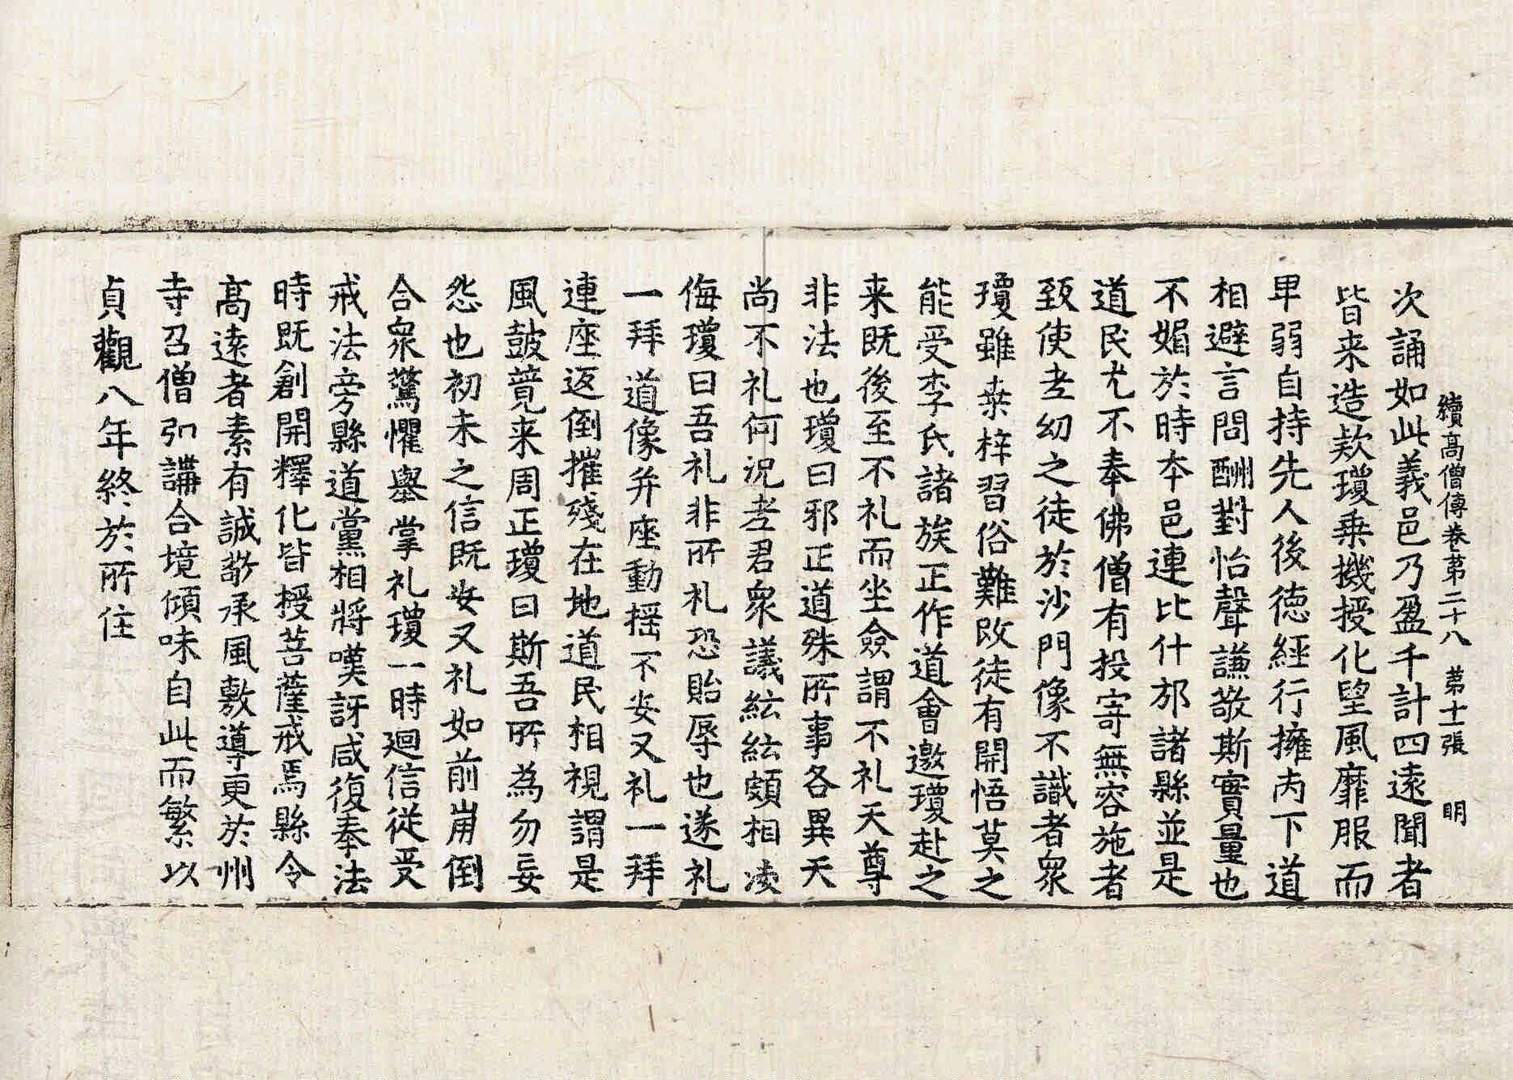 續高僧傳卷第二十八 第十一張 明
次誦如此義邑乃盈千計四遠聞者
皆来造欵瓊乗機授化望風靡服而
卑弱自持先人後徳經行擁丙下道
相避言問酬對怡聲謙敬斯實量也
不媚於時夲邑連比什邡諸縣並是
道民尤不奉佛僧有投寄無容施者
致使老幼之徒於沙門像不識者衆
瓊雖桒梓習俗難改徒有開悟莫之
能受李氏諸族正作道會邀瓊赴之
来既後至不礼而坐僉謂不礼天尊
非法也瓊曰邪正道殊所事各異天
尚不礼何況老君衆議紜紜頗相凌
侮瓊曰吾礼非所礼恐貽辱也遂礼
一拜道像并座動揺不安又礼一拜
連座返倒摧殘在地道民相視謂是
風鼓競来周正瓊曰斯吾所為勿妄
怨也初未之信既安又礼如前崩倒
合衆驚懼舉掌礼瓊一時迴信從受
戒法旁縣道黨相將嘆訝咸復奉法
時既創開釋化皆授菩薩戒焉縣令
髙遠者素有誠敬承風敷導更於州
寺召僧弘講合境傾味自此而繁以
貞觀八年終於所住